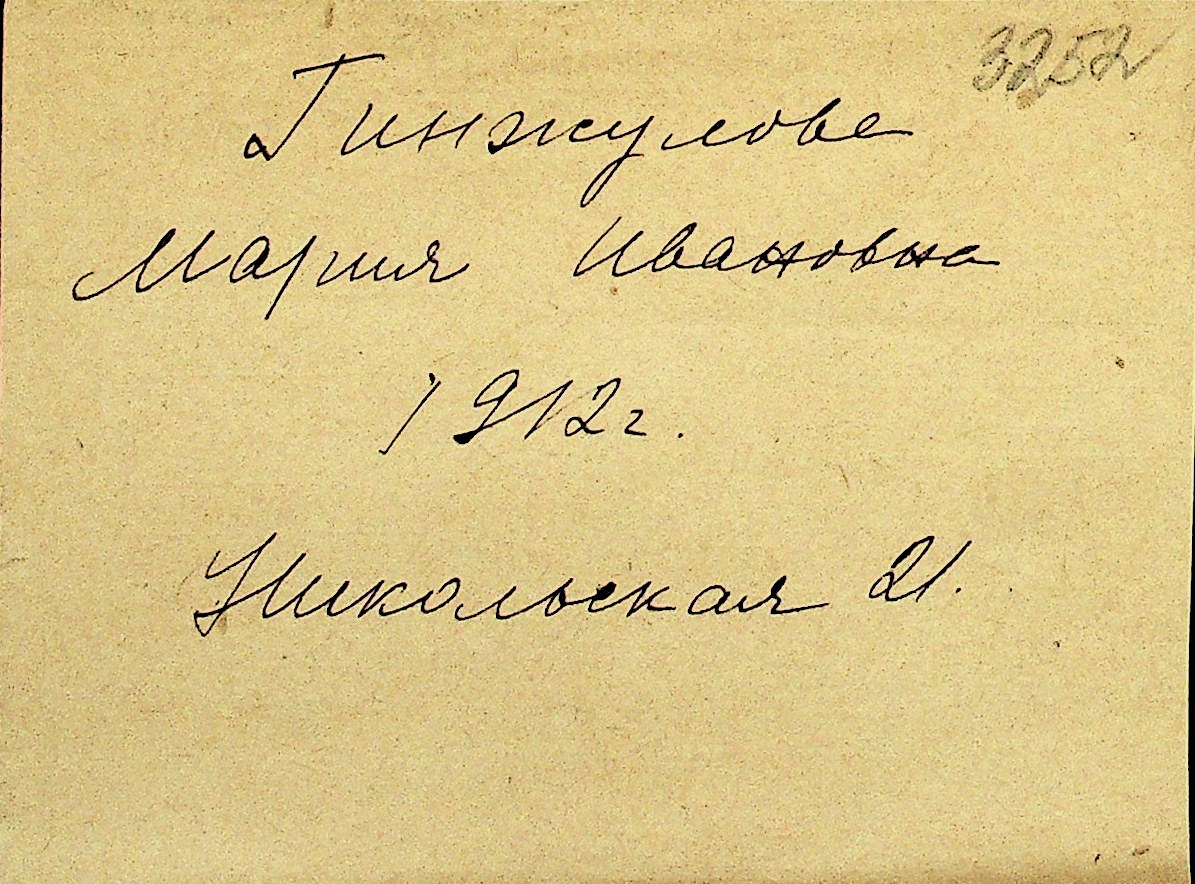 3252
Гинжулова
Мария Ивановна
1912 г.
Никольская 21.